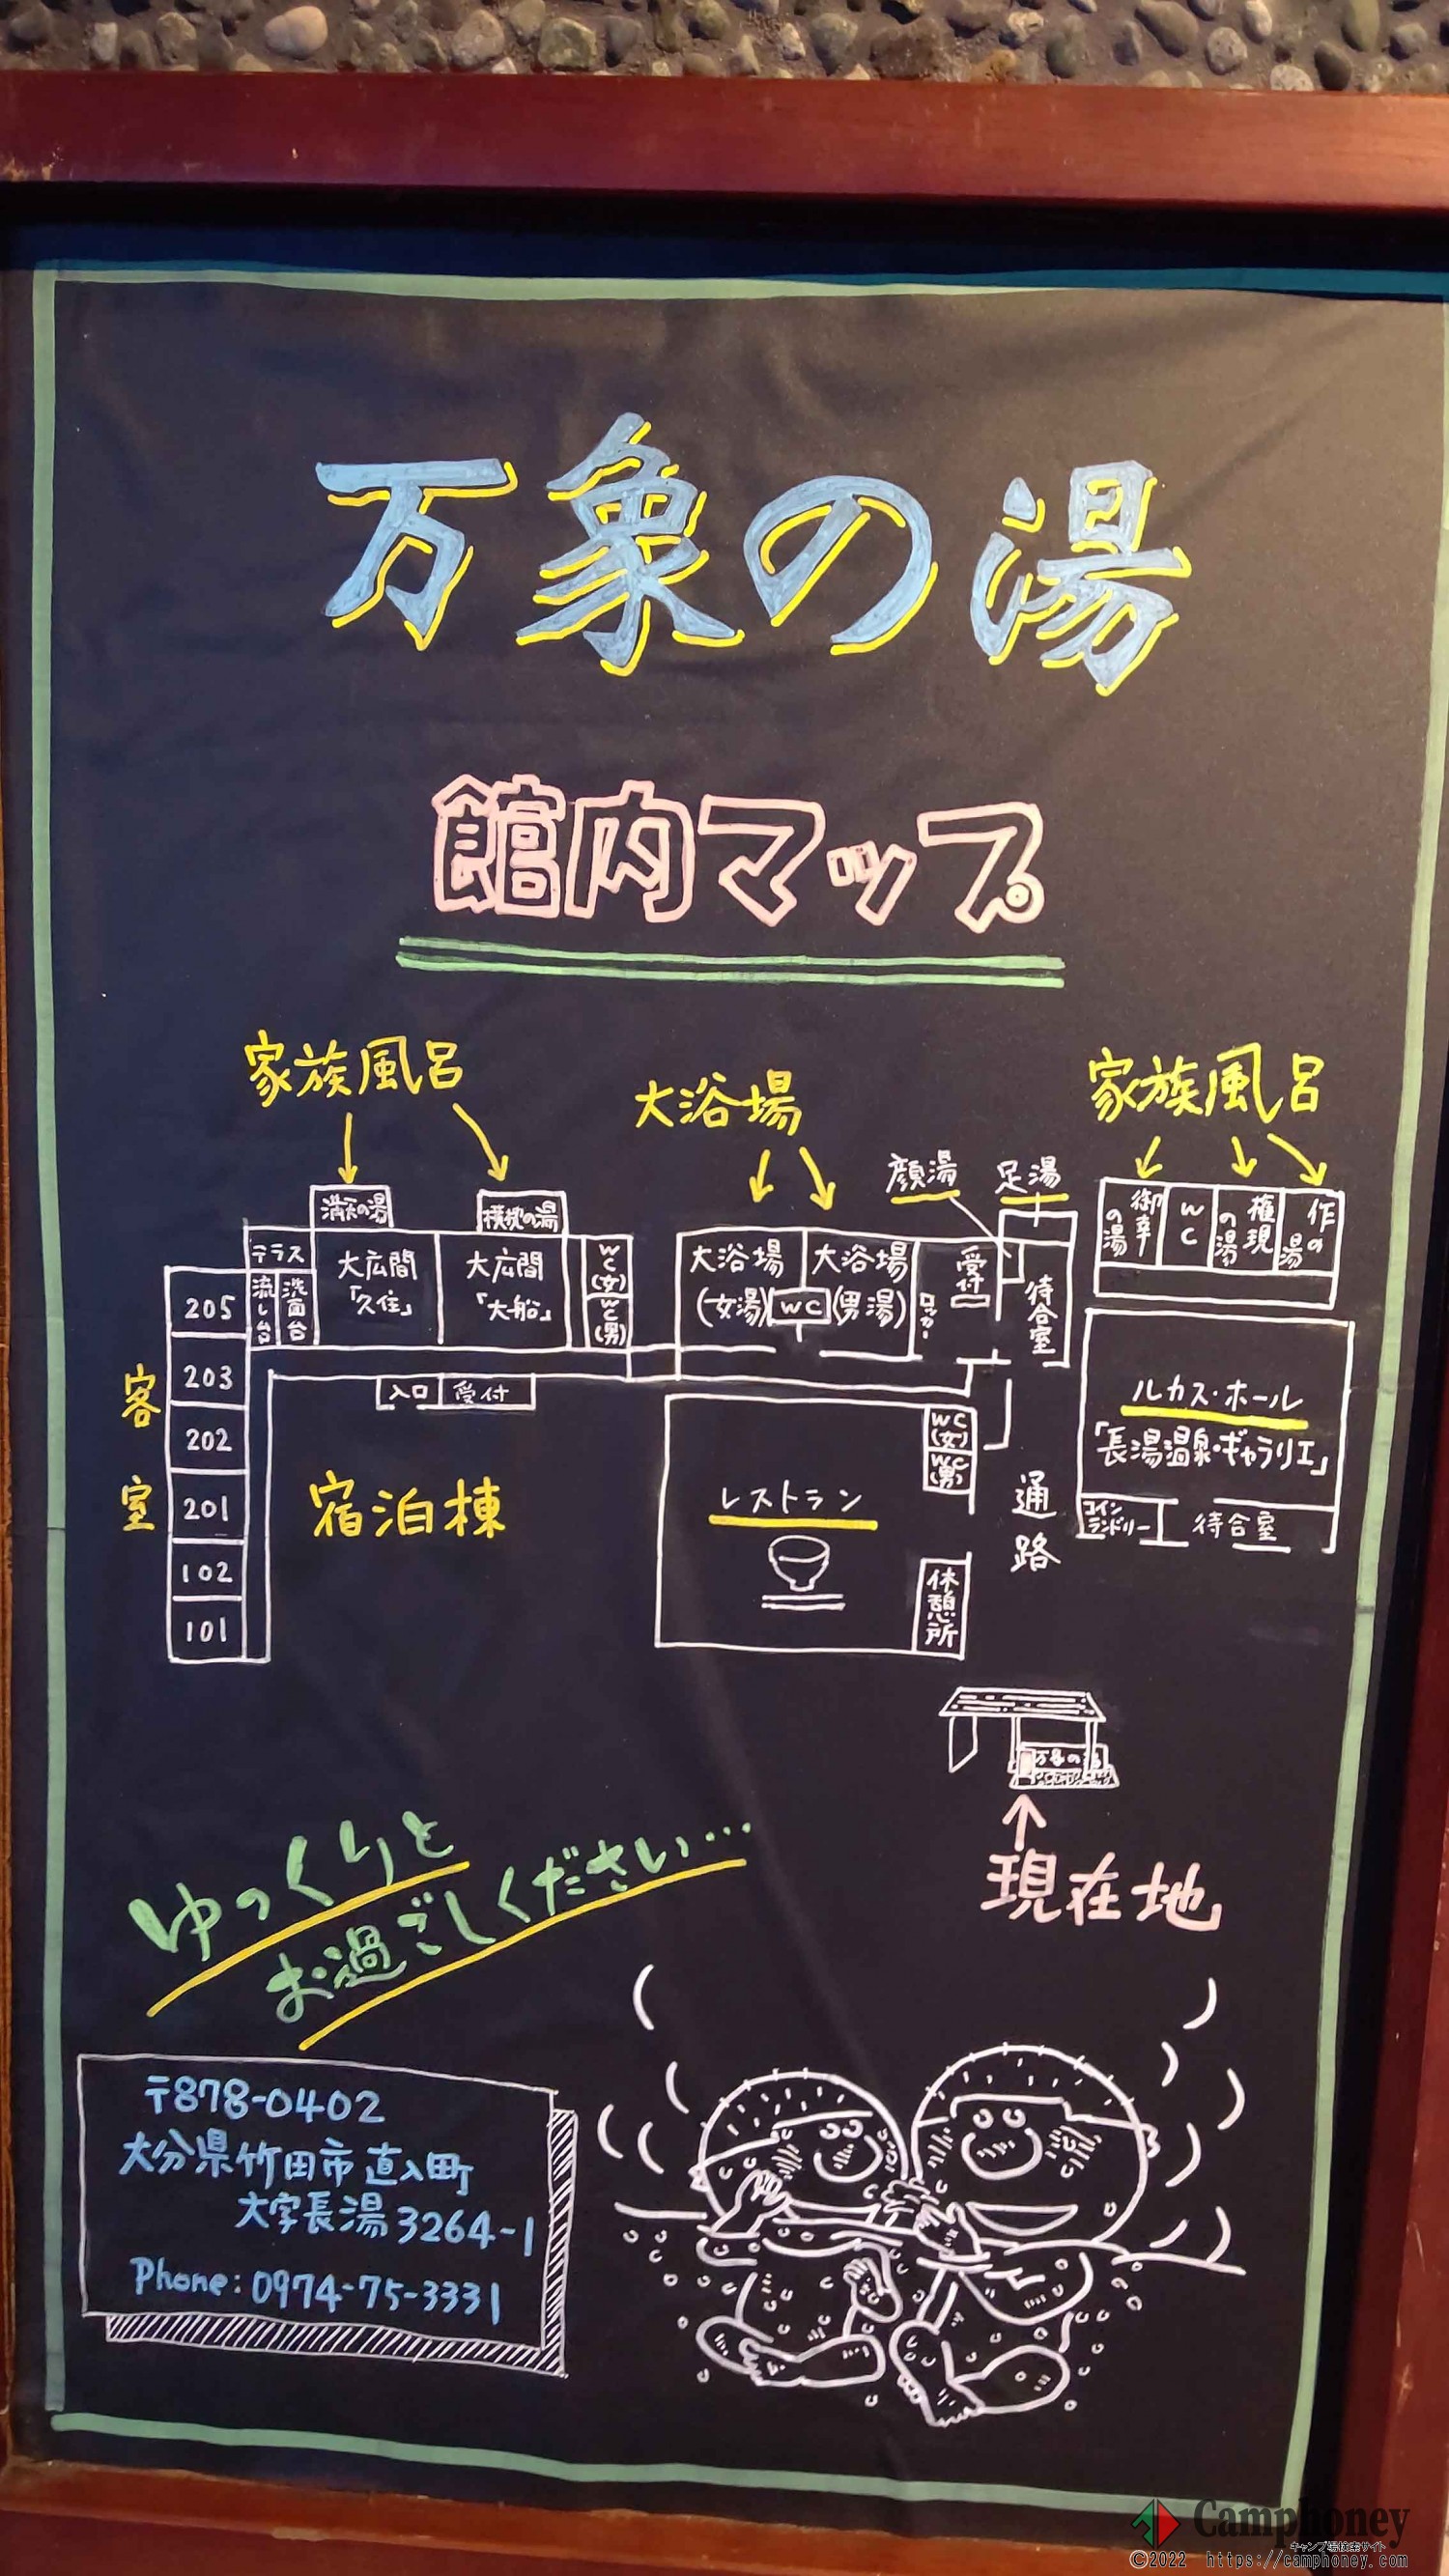 万象の湯
館内マップ
家族風呂
大浴場
家族風呂
顔湯
足湯
満天の湯
御幸の湯
WC
権現の湯
作の湯
テラス
流し台
洗面台
大広間
「久住」
大広間
「大船」
WC(女)
WC(男)
大浴場
(女湯)
WC
大浴場
(男湯)
ロッカー
受付
待合室
客室
205
203
202
201
102
101
入口
受付
宿泊棟
レストラン
WC(女)
WC(男)
休憩所
通路
ルカス・ホール
「長湯温泉・ギャラリエ」
コインランドリー
待合室
万象の湯
現在地
ゆっくりと
お過ごしください…
〒878-0402
大分県竹田市直入町
大字長湯3264-1
Phone:0974-75-3331
Camphoney
キャンプ場検索サイト
©2022 https://camphoney.com